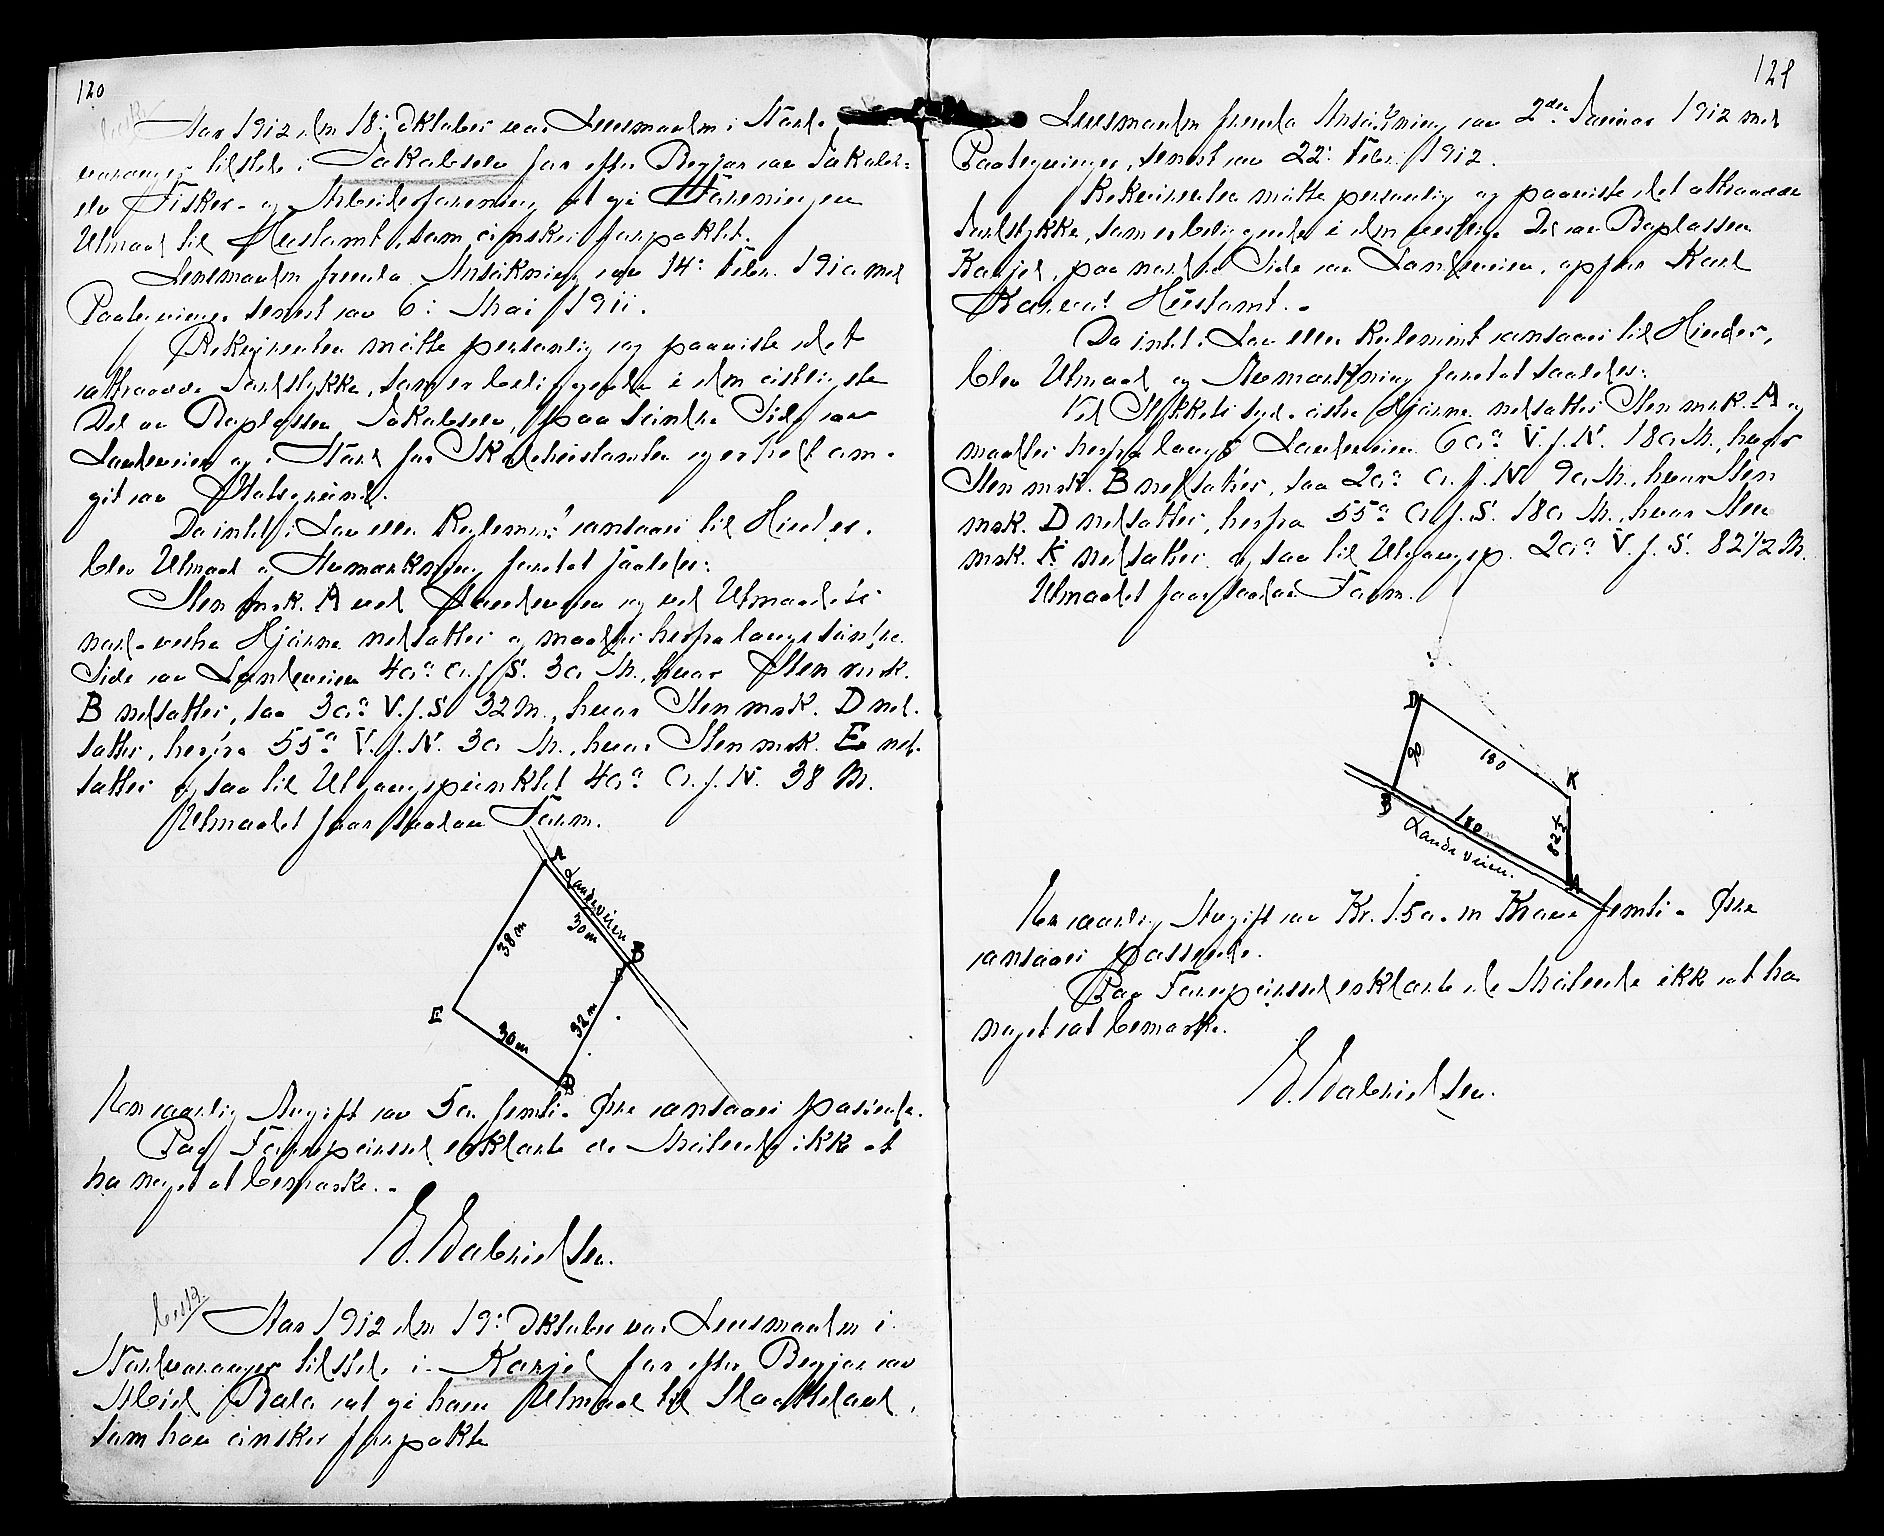 120
Aar 1912 den 18. Oktober var Lensmanden i Nord-
varanger tilstede i Jakobselv for efter Begjær av Jakobs-
elv Fisker- og Arbeiderforening at gi Foreningen
Utmaal til Hustomt, som ønskes forpaktet.
Lensmanden fremla Ansøkning av 14. Febr. 1910 med
Paategninger senest av 6. Mai 1911.
Rekvirenten møtte personlig og paaviste det
attraaede Jordstykke, som er beliggende i den østligste
Del av Boplassen Jakobselv, paa søndre Side av
Landeveien og i Nord for Skolehustomten og er helt om-
git av Statsgrund.
Da intet i Lov eller Reglement ansaaes til Hinder,
blev Utmaal og Avmerkning foretat saaledes:
Sten mrk. A ved Landeveien og ved Utmaalets
nord-vestre Hjørne nedsattes og maaltes herfra langs søndre
Side av Landeveien 40° O. f. S. 30 M., hvor Sten mrk.
B nedsattes, saa 30° V. f. S. 32 M., hvor Sten mrk. D ned-
sattes, herfra 55° V. f. N. 30 M., hvor Sten mrk. E ned-
sattes og saa til Utgangspunktet 40° O. f. N. 38 M.
Utmaalet faar saadan Form.
A
Landeveien
30 m
38 m
B
E
32 m
30 m
D
En aarlig Avgift av 50 femti- Øre ansaaes passende.
Paa Forespørsel erklærte de Møtende ikke at
ha noget at bemerke.-
G. Gabrielsen.
Aar 1912 den 19. Oktober var Lensmanden i
Nordvaranger tilstede i Karjel for efter Begjær av
Bala at gi ham Utmaal til Slaatteland,
som han ønsker forpakte
121
Lensmanden fremla Ansøkning av 2den Januar 1912 med
Paategninger, senest av 22. Febr. 1912.
Rekvirenten møtte personlig og paaviste det attraaede
Jordstykke, som er beliggende i den vestlige Del av Boplassen
Karjel, paa nordre Side av Landeveien, opfor Karl
Hustomt.-
Da intet i Lov eller Reglement ansaaes til Hinder,
blev Utmaal og Avmerkning foretat saaledes:
Ved Stykkets syd-østre Hjørne nedsattes Sten mrk. A og
maaltes herfra langs Landeveien 60° V. f. N. 180 M., hvor
Sten mrk. B nedsattes, saa 20° O. f. N. 90 M., hvor Sten
mrk. D nedsattes, herfra 55° O. f. S. 180 M., hvor Sten
mrk. K nedsattes og saa til Utgangsp. 20° V. f. S. 82 1/2 M.
Utmaalet faar saadan Form.
D
180
90
K
B
180 m
82 1/2
Landeveien.
A
En aarlig Avgift av Kr. 1.50 en Krone femti- Øre
ansaaes passende.
Paa Forespørsel erklærte de Møtende ikke at ha
noget at bemerke.
G. Gabrielsen.